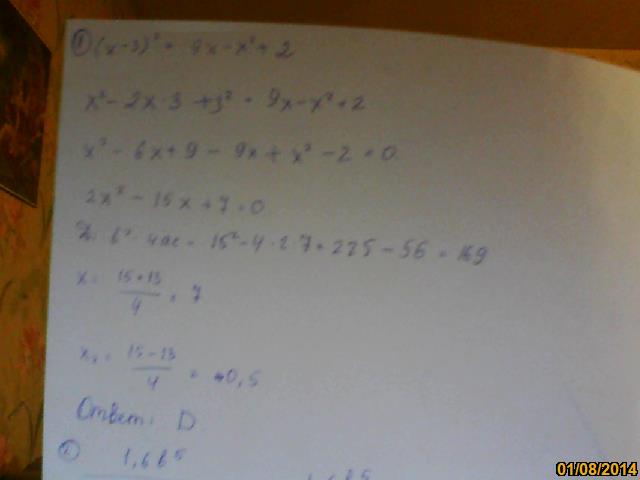 ① (x-3)² = 9x-x²+2
x²-2x·3+3² = 9x-x²+2
x²-6x+9-9x+x²-2=0
2x²-15x+7=0
b²-4ac = 15²-4·2·7=225-56=169
x = 15+13/4 = 7
x₂ = 15-13/4 = 0,5
Ответ: D
② 1,6b⁵
01/08/2014